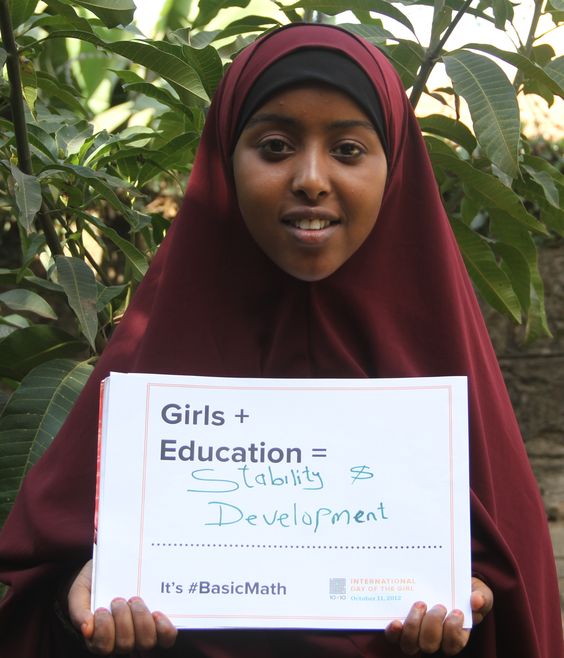 Girls +
Education =
Stability &
Development
It's #BasicMath
10×10
INTERNATIONAL
DAY OF THE GIRL
October 11, 2012